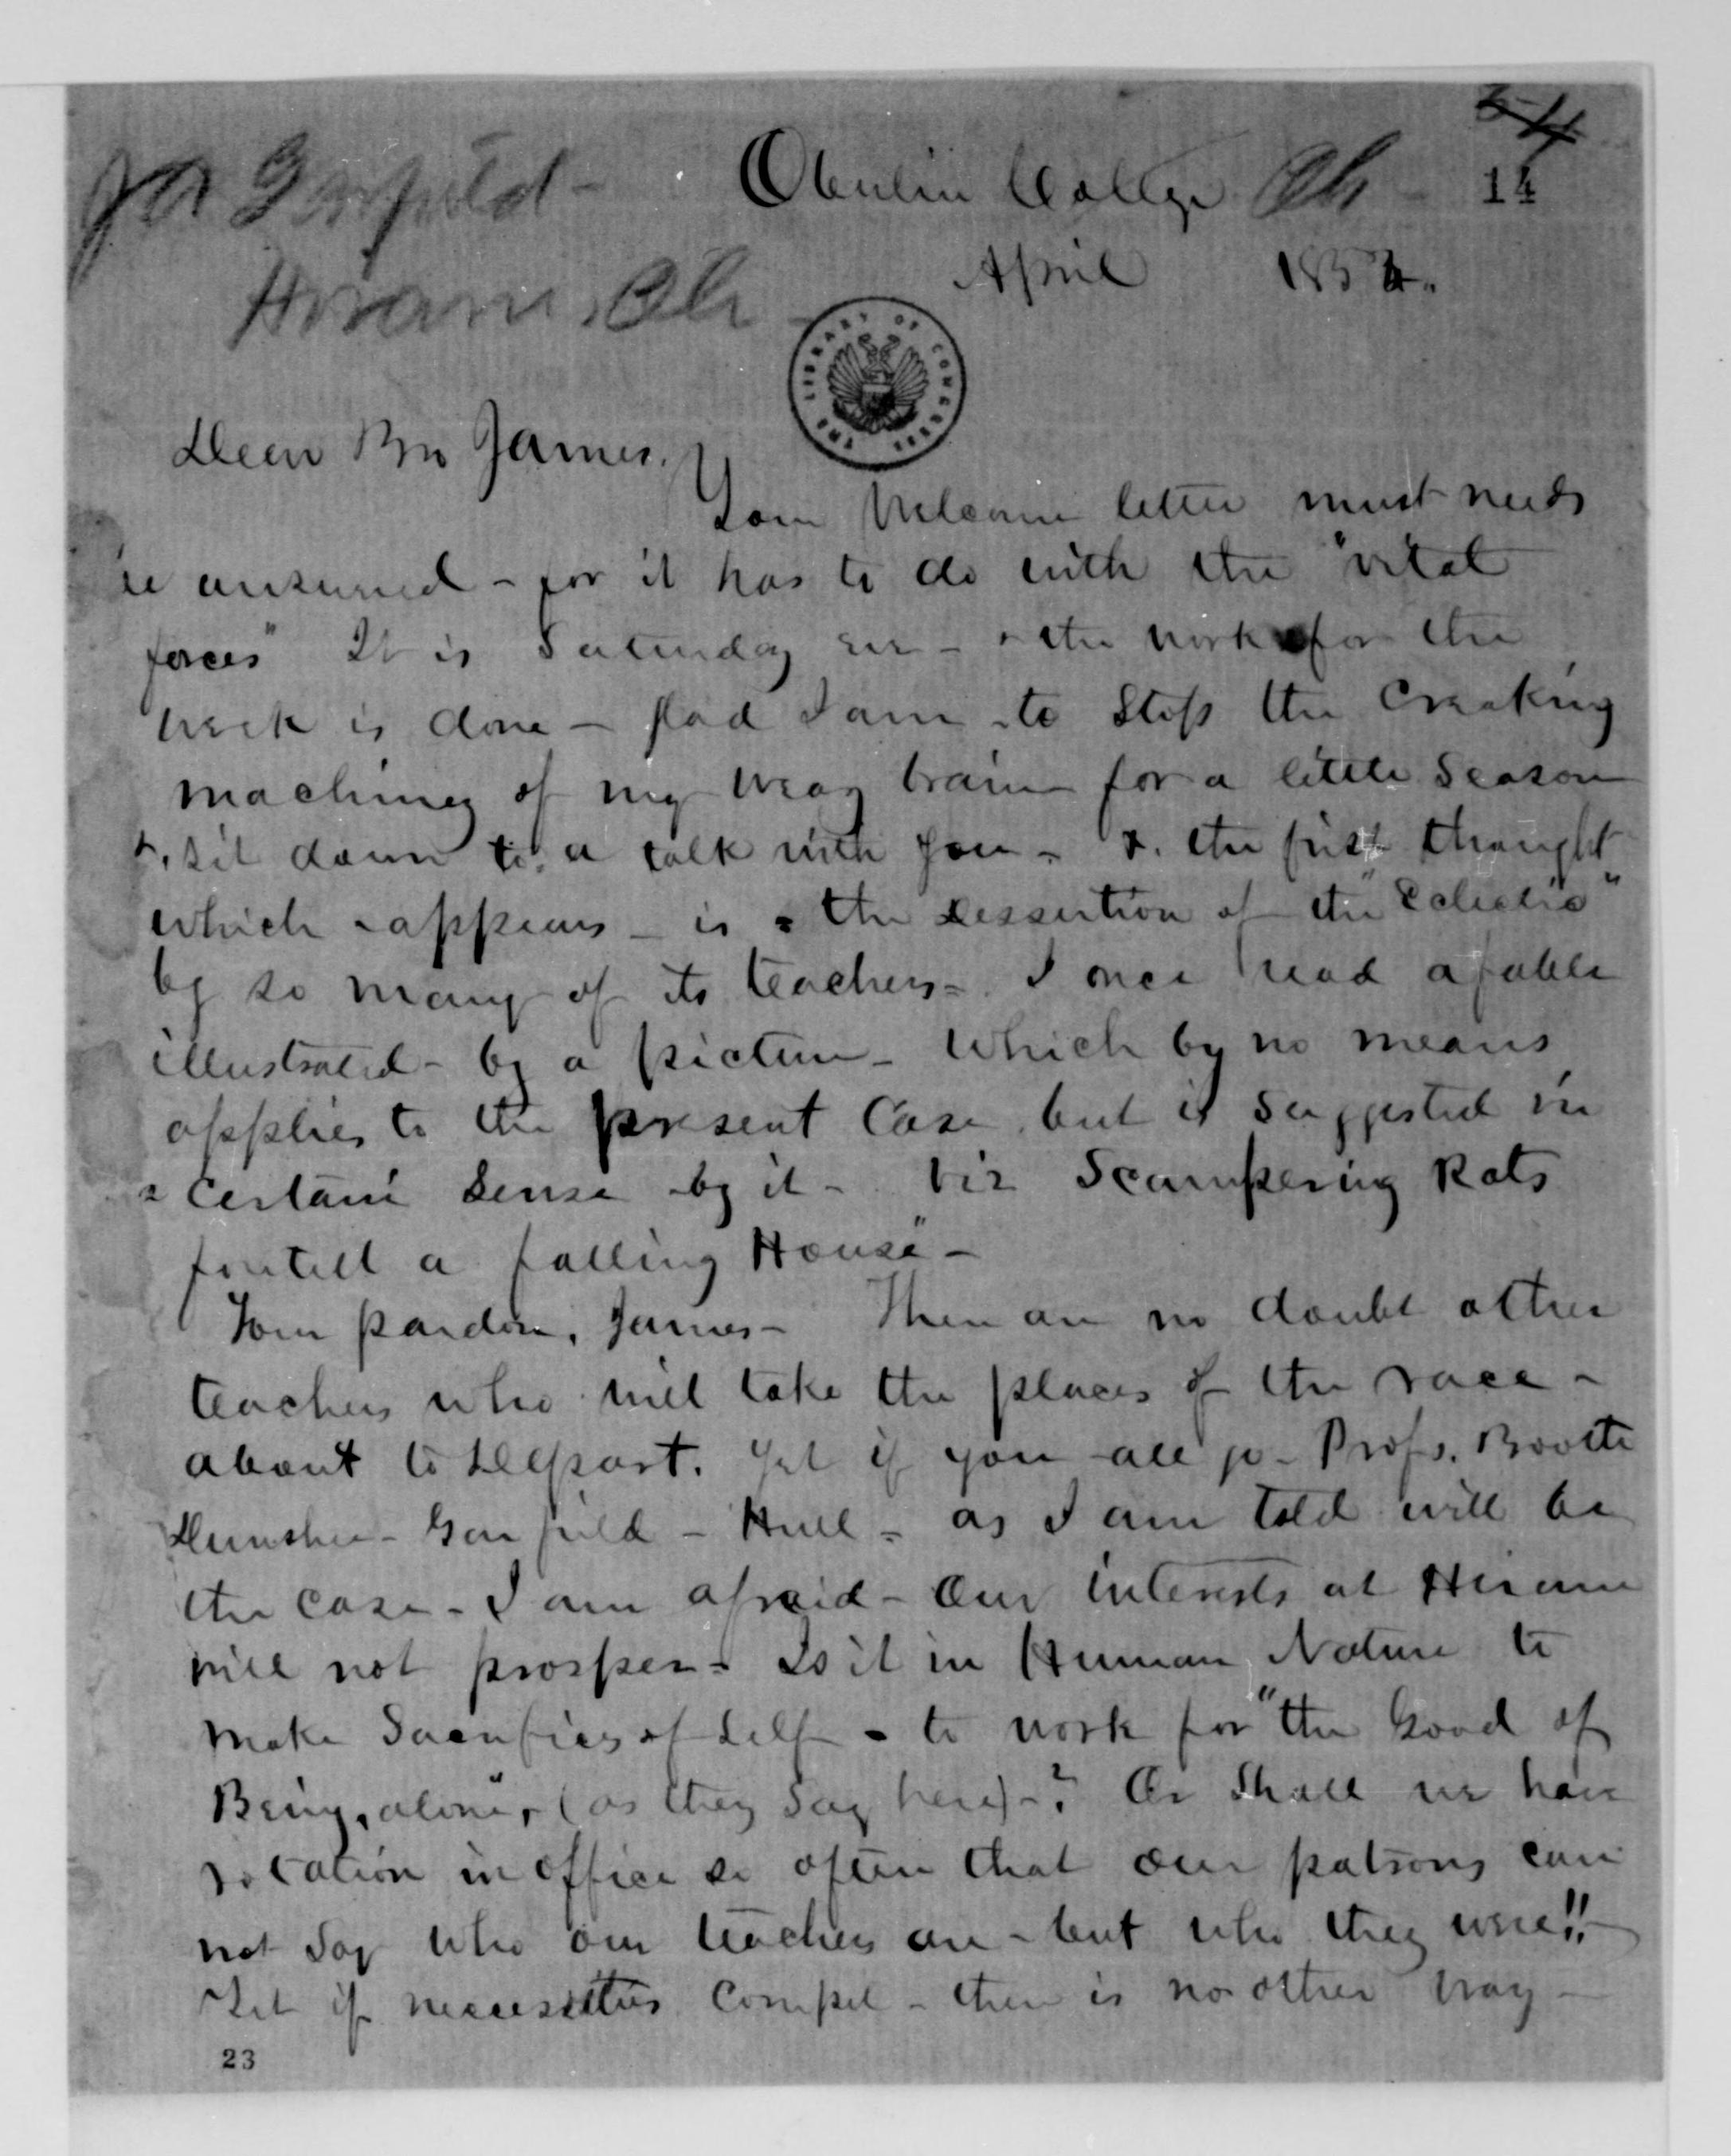 Jas Garfield - Oberlin College Oh - 14
Hiram, Oh - April 185
THE LIBRARY OF CONGRESS
Dear Bro James.
Your Welcome letter must needs
be answered - for it has to do with the "vital
forces" It is Saturday eve - & the work for the
week is done - Glad I am to Stop the Creaking
machinery of my weary brain for a little Season
&. sit down to a talk with you - &. the first thought
which appears - is - the Dessertion of the "Eclectic"
by so many of its teachers - I once read a fable
illustrated - by a picture - which by no means
applies to the present Case but is suggested in
a Certain Sense by it - viz Scampering Rats
foretell a falling House" -
Your pardon, James - There are no doubt other
teachers who will take the places of the race -
about to Depart. Yet if you all go - Profs. Booth
Dunshee - Garfield - Hull - as I am told will be
the case - I am afraid - Our interests at Hiram
will not prosper - Is it in Human Nature to
make Sacrifices of Self - to work for "the Good of
Being, alone", (as they Say here) - ? Or Shall we have
rotation in office so often that our patrons can
not say who our teachers are - but who they were!!
Yet if necessities Compel - there is no other way -
23